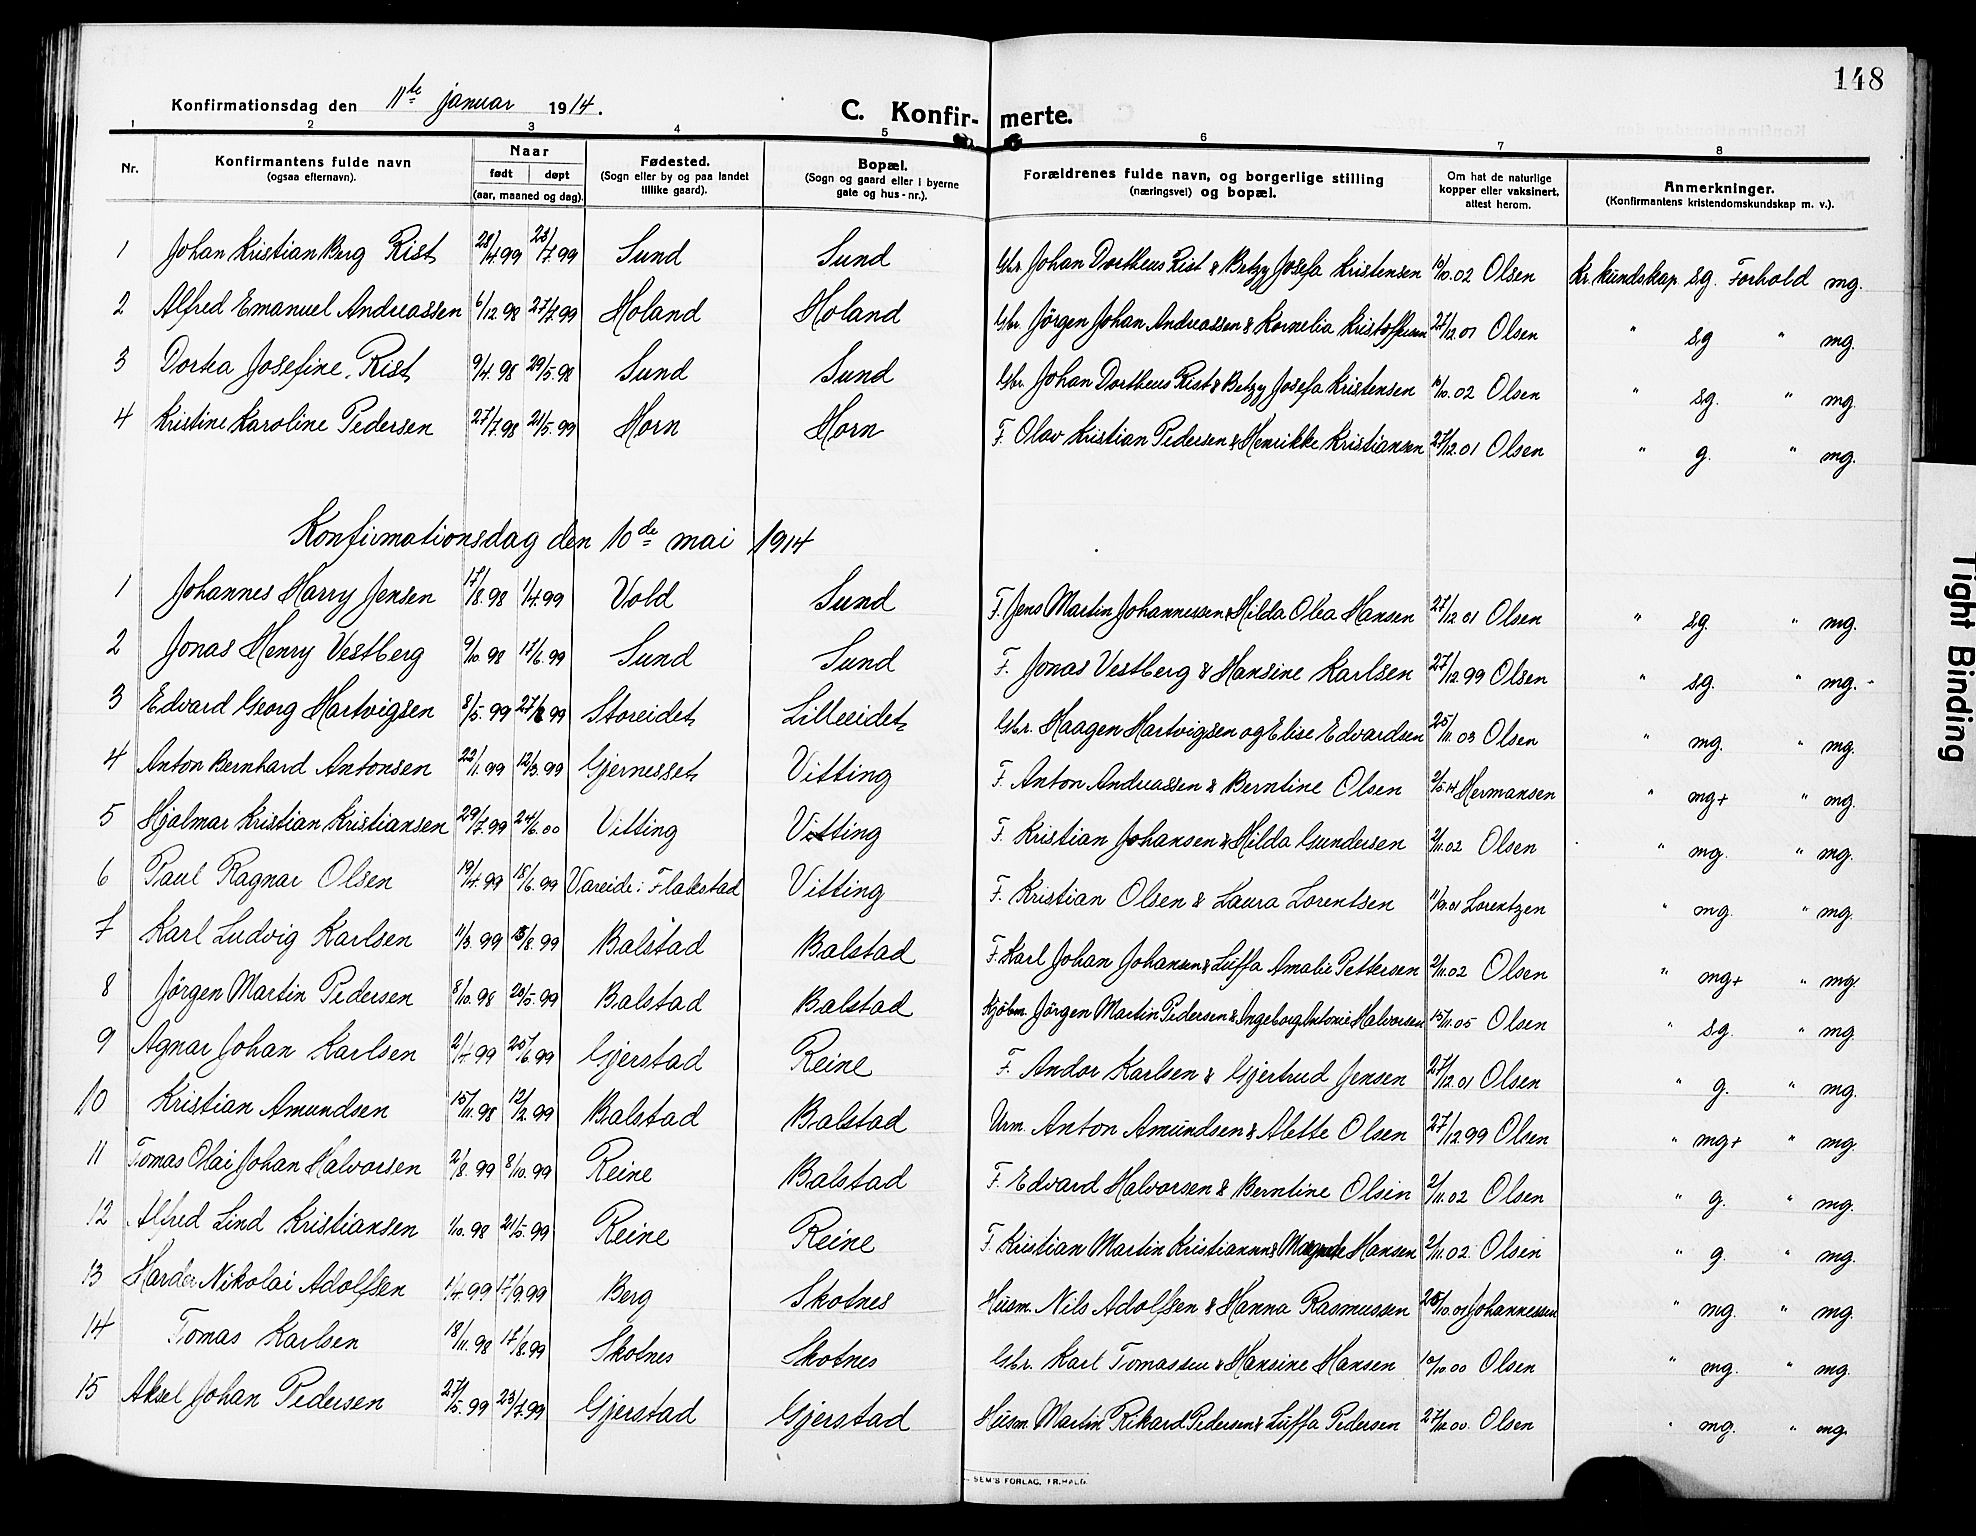 148
Konfirmationsdag den 11te januar 1914.
C. Konfir- merte.
1 2 3 4 5 6 7 8
Nr. Konfirmantens fulde navn (ogsaa efternavn). Naar født døpt (aar, maaned og dag). Fødested. (Sogn eller by og paa landet tillike gaard). Bopæl. (Sogn og gaard eller i byerne gate og hus-nr.). Forældrenes fulde navn, og borgerlige stilling (næringsvei) og bopæl. Om hat de naturlige kopper eller vaksinert, attest herom. Anmerkninger. (Konfirmantens kristendomskundskap m. v.).
1 Johan Kristian Berg Rist 28/4.99 23/7.99 Sund Sund Gbr. Johan Dortheus Rist & Betzy Josefa Kristensen 10/10.02 Olsen Kr. kundskap sg. Forhold mg.
2 Alfred Emanuel Andreassen 6/12.98 27/7.99 Holand Holand Gbr. Jörgen Johan Andreassen & Kornelia Kristoffersen 27/12.01 Olsen " sg " mg.
3 Dorka Josefine Rist 9/4.98 29/5.98 Sund Sund Gbr. Johan Dortheus Rist & Betzy Josefa Kristensen 10/10.02 Olsen " sg. " mg.
4 Kristine Karoline Pedersen 27/7.98 21/5.99 Horn Horn F. Olav Kristian Pedersen & Henrikke Kristiansen 27/12.01 Olsen " g. " mg.
Konfirmationsdag den 10de mai 1914
1 Johannes Harry Jensen 17/8.98 1/4.99 Vold Sund F. Jens Martin Johannessen & Hilda Olea Hansen 27/12 01 Olsen " sg. " mg.
2 Jonas Henry Vestberg 9/10.98 17/6.99 Sund Sund F. Jonas Vestberg & Hansine Karlsen 27/12.99 Olsen " sg. " mg.
3 Edvard Georg Hartvigsen 8/5.99 99 Storeidet Lilleeidet Gbr. Haagen Hartvigsen og Elise Edvardsen 25/11.03 Olsen " mg. " mg.
4 Anton Bernhard Antonsen 22/1.99 12/3.99 Gjernesset Vitting F. Anton Andreassen & Berntine Olsen 2/5.14 Hermansen " mg+ " mg.
5 Hjalmar Kristian Kristiansen 29/7.99 24/6.00 Vitting Vitting F. Kristian Johansen & Hilda Gundersen 2/11.02 Olsen " mg. " mg.
6 Paul Ragnar Olsen 19/4.99 18/6.99 Vareide i Flakstad Vitting F. Kristian Olsen & Laura Lorentsen 11/9.01 Lorentzen " mg. " mg.
7 Karl Ludvig Karlsen 11/3.99 99 Balstad Balstad F. Karl Johan Johansen & Luffa Amalie Pettersen 2/11.02 Olsen " mg+ " mg.
8 Jörgen Martin Pedersen 8/10.98 20/5.99 Balstad Balstad Kjöbm. Jörgen Martin Pedersen & Ingeborg Antonie Halvorsen 15/11.05 Olsen " sg. " mg.
9 Agnar Johan Karlsen 2/4.99 25/6.99 Gjerstad Reine F. Andor Karlsen & Gjertrud Jensen 27/12.01 Olsen " g. " mg.
10 Kristian Amundsen 15/11.98 12/2.99 Balstad Balstad Urm. Anton Amundsen & Alette Olsen 27/12.99 Olsen " mg+ " mg.
11 Tomas Olai Johan Halvorsen 2/8.99 8/10.99 Reine Balstad F. Edvard Halvorsen & Berntine Olsen 2/11.02 Olsen " g. " mg.
12 Alfred Lind Kristiansen 1/10.98 21/5.99 Reine Reine F. Kristian Martin Kristiansen & Hansen 2/11.02 Olsen " g. " mg.
13 Harder Nikolai Adolfsen 1/4.99 17/9.99 Berg Skotnes Husm. Nils Adolfsen & Hanna Rasmussen Johannessen " mg. " mg.
14 Tomas Karlsen 18/11.98 17/8.99 Skotnes Skotnes Gbr. Karl Tomassen & Hansine Hansen 10/10.00 Olsen " mg. " mg.
15 Aksel Johan Pedersen 27/5.99 23/7.99 Gjerstad Gjerstad Husm. Martin Rikard Pedersen & Luffa Pedersen 27/12.00 Olsen " mg. " mg.
SEM'S FORLAG, FR.HALD.
Tight Binding